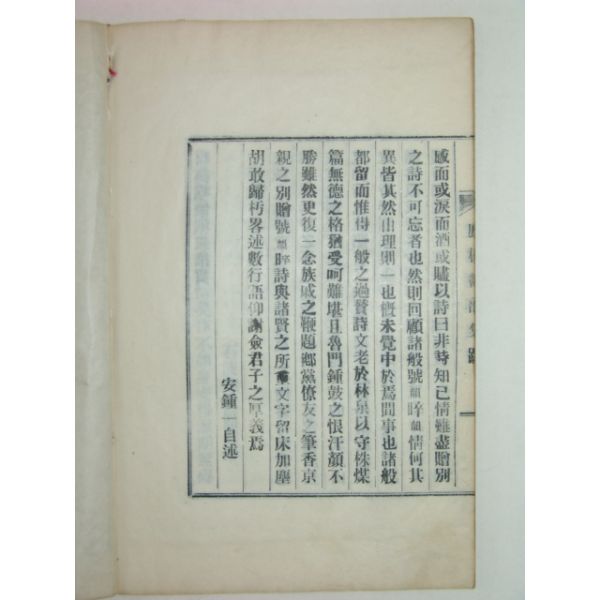 感而或淚而酒或噓以詩曰非詩知己情難盡贈別
之詩不可忘者也然則回顧諸般號韻晬韻情何其
異皆其然由理則一也慨未覺中於焉間事也諸般
都留而惟得一般之過贊詩文老於林泉以守株煤
篇無德之格猶受呵難堪且魯門鍾鼓之恨汗顏不
勝雖然更復一念族戚之鞭題鄕黨僚友之筆香京
親之別贈號韻晬詩與諸賢之所集文字留床加塵
胡敢歸朽畧述數行語仰謝僉君子之厚義焉
安鍾一自述